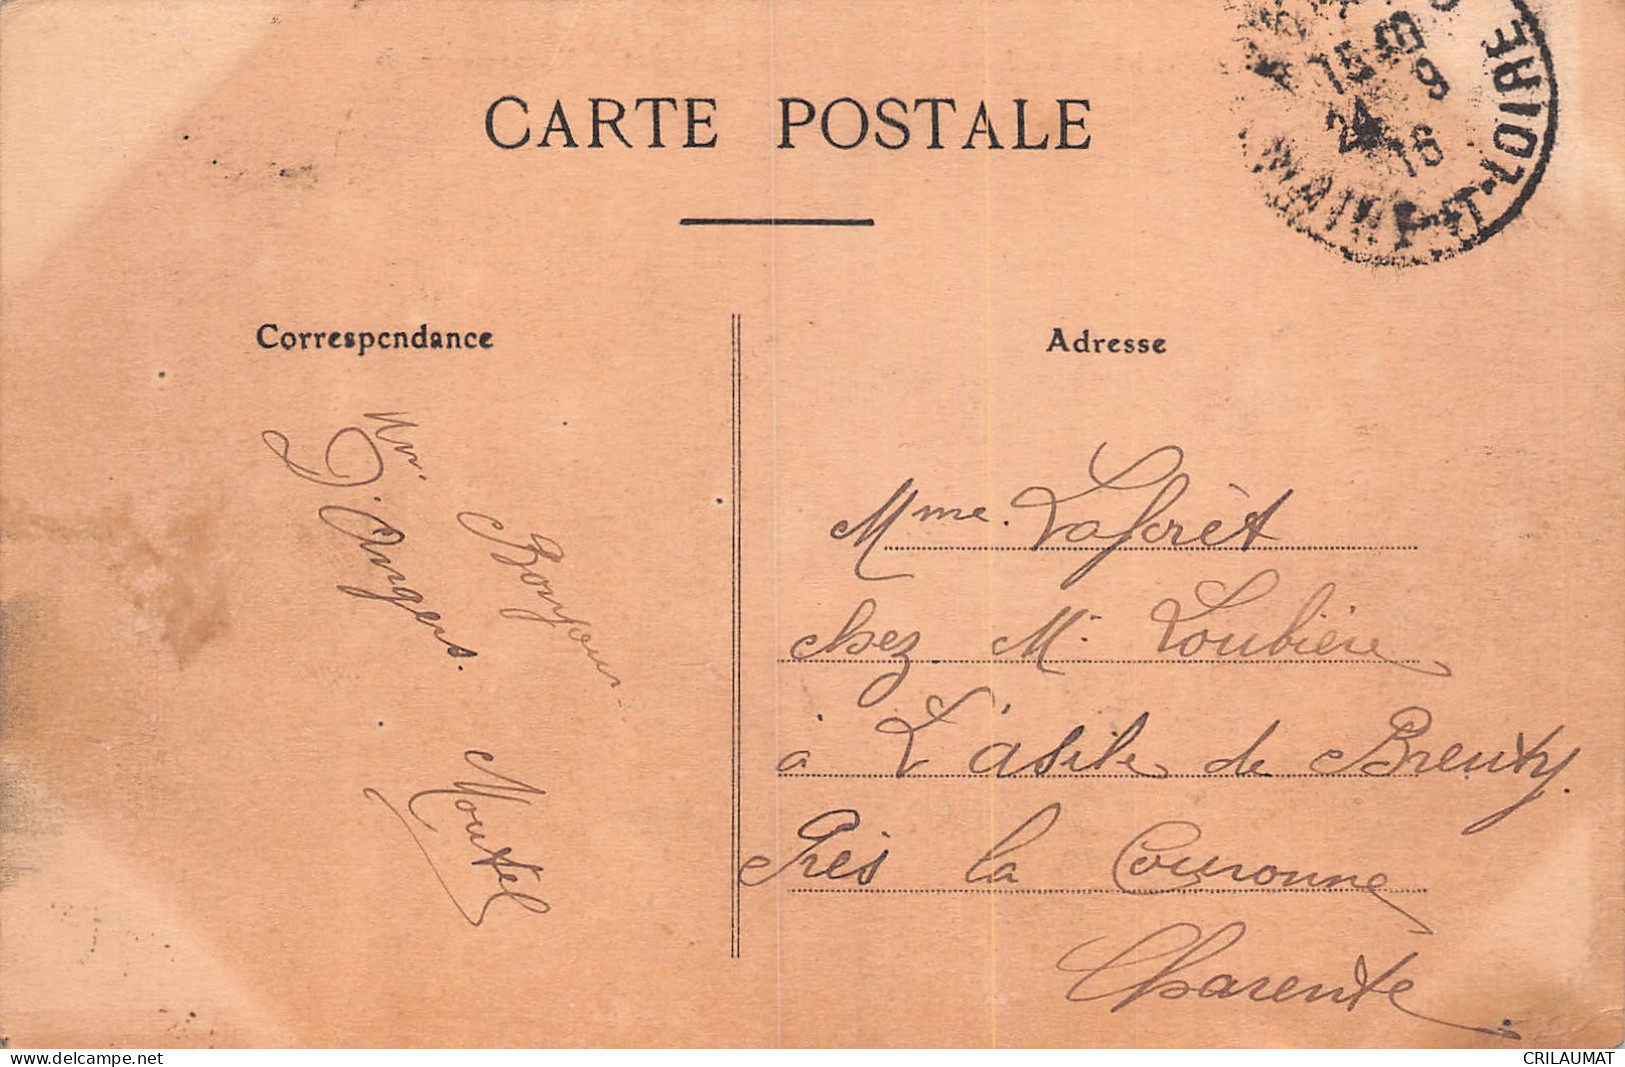 CARTE POSTALE
15 45
24 9
16
MAINE-ET-LOIRE
Correspondance
Un
Bonjour
D'Angers.
Moutel
Adresse
Mme. Laforèt
chez Mr Loubière
à L'asile de Breuty.
Près la Couronne
Charente.
CRILAUMAT